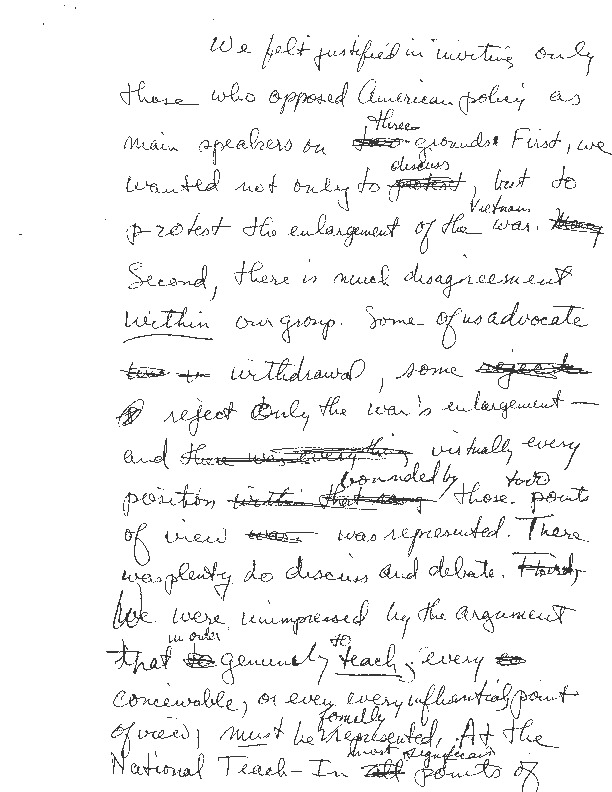 We felt justified in inviting only
those who opposed American policy as
three
main speakers on two grounds: First, we
discuss
wanted not only to protest, but to
Vietnam
protest the enlargement of the war.
Second, there is much disagreement
within our group. Some of us advocate
withdrawal, some
reject only the war's enlargement —
and there was everything virtually every
bounded by two
position within that range those points
of view was was represented. There
was plenty to discuss and debate. Third,
We were unimpressed by the argument
in order to
that to genuinely teach, every
conceivable, or even every influential, point
formally
of view, must be represented. At the
most significant
National Teach-In all points of